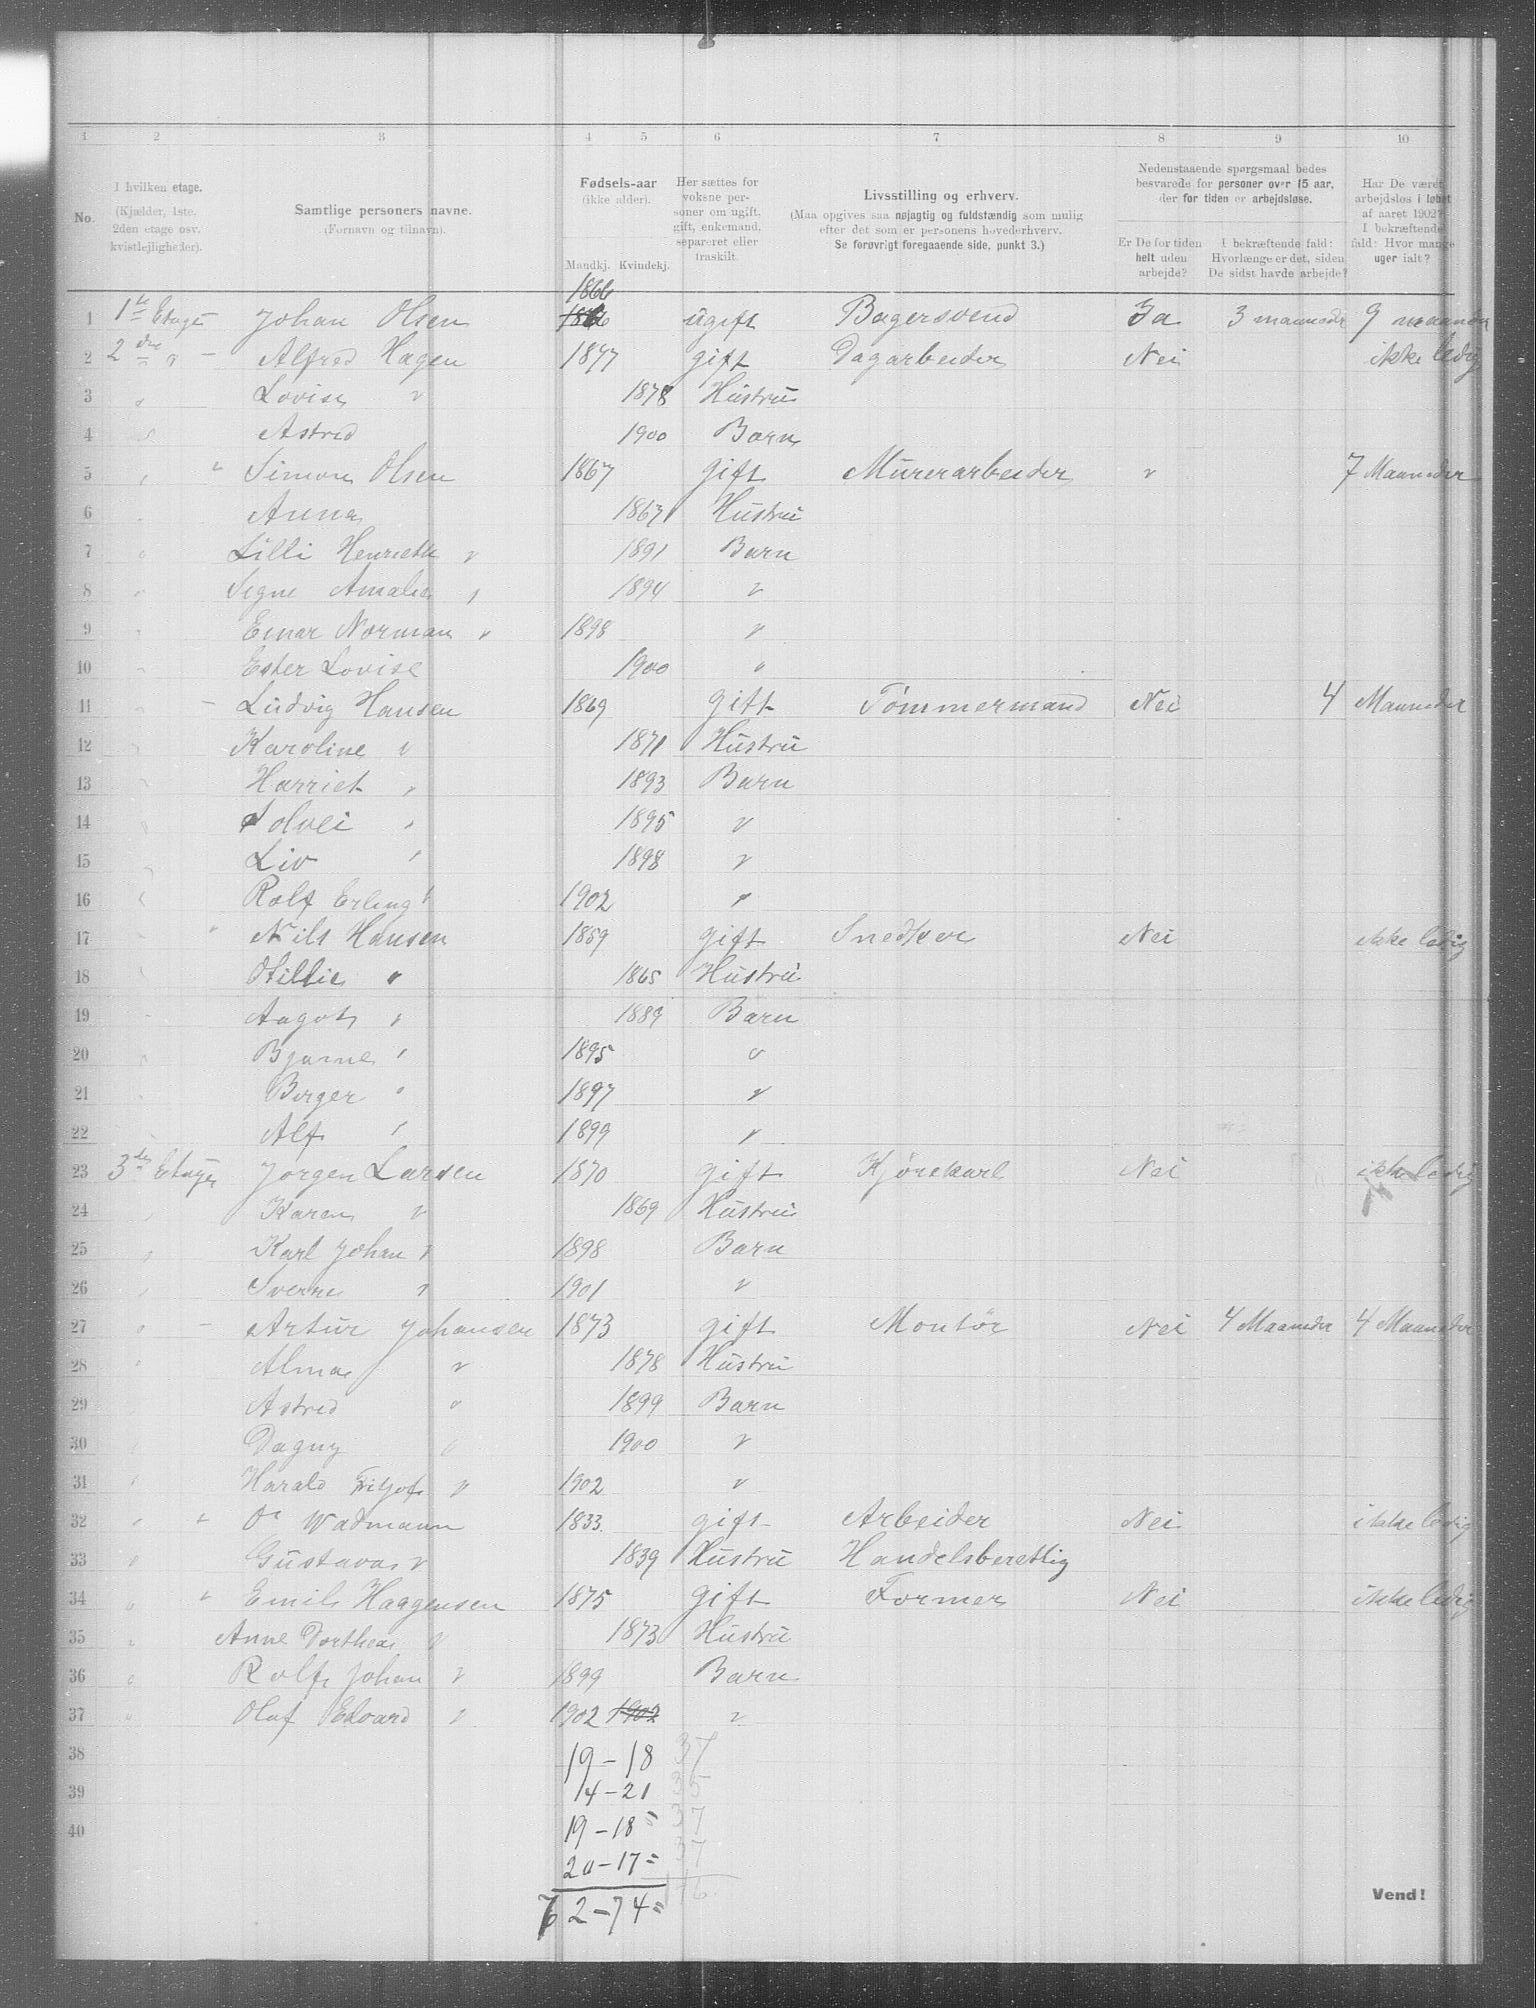 1 2 3 4 5 6 7 8 9 10
No.
I hvilken etage. (Kjælder, 1ste. 2den etage osv. kvistlejligheder).
Samtlige personers navne. (Fornavn og tilnavn).
Fødsels-aar (ikke alder).
Mandkj. Kvindekj.
Her sættes for voksne personer om ugift, gift, enkemand, separeret eller fraskilt.
Livsstilling og erhverv.
(Maa opgives saa nøjagtig og fuldstændig som mulig efter det som er personens hovederhverv.
Se forøvrigt foregaaende side, punkt 3.)
Nedenstaaende spørgsmaal bedes besvarede for personer over 15 aar, der for tiden er arbejdsløse.
Er De for tiden helt uden arbejde?
I bekræftende fald: Hvorlænge er det, siden De sidst havde arbejde?
Har De været arbejdsløs i løbet af aaret 1902? I bekræftende fald: Hvor mange uger ialt?
1866
1 1ste Etage Johan Olsen ugift Bagersvend Ja 3 maaneder 9 maaneder
2 2den " - Alfred Hagen 1877 gift Dagarbeider Nei ikke ledig
3 " Lovise " 1878 Hustru
4 " Astrid 1900 Barn
5 " " Simon Olsen 1867 gift Murerarbeider " 7 Maaneder
6 " Anna 1867 Hustru
7 " Lilli Henriette " 1891 Barn
8 " Signe Amalie " 1894 "
9 " Einar Norman " 1898 "
10 " Ester Lovise 1900 "
11 " - Ludvig Hansen 1869 gift Tømmermand Nei 4 Maaneder
12 " Karoline " 1871 Hustru
13 " Harriet " 1893 Barn
14 " Solvei " 1895 "
15 " Liv " 1898 "
16 " Rolf Erling " 1902 "
17 " " Nils Hansen 1859 gift Snedker Nei ikke ledig
18 " Otillie " 1865 Hustru
19 " Aagot " 1889 Barn
20 " Bjarne " 1895 "
21 " Birger " 1897 "
22 " Alf " 1899 "
23 3die Etage Jørgen Larsen 1870 gift Kjørekarl Nei ikke ledig
24 " Karen " 1869 Hustru
25 " Karl Johan " 1898 Barn
26 " Sverre " 1901 "
27 " - Artur Johansen 1873 gift Montør Nei 4 Maaneder 4 Maaneder
28 " Alma " 1878 Hustru
29 " Astrid " 1899 Barn
30 " Dagny " 1900 "
31 " Harald Fritjof " 1902 "
32 " " Wadmann 1833 gift Arbeider Nei ikke ledig
33 " Gustava " 1839 Hustru Handelsberettig
34 " " Emil Haagensen 1875 gift Former Nei ikke ledig
35 " Anne Dorthea " 1873 Hustru
36 " Rolf Johan " 1899 Barn
37 " Olaf Edvard " 1902 1902 "
38 19 - 18 37
39 14 - 21 35
40 19 - 18 = 37
20 - 17 = 37
72 - 74 = 146
Vend!